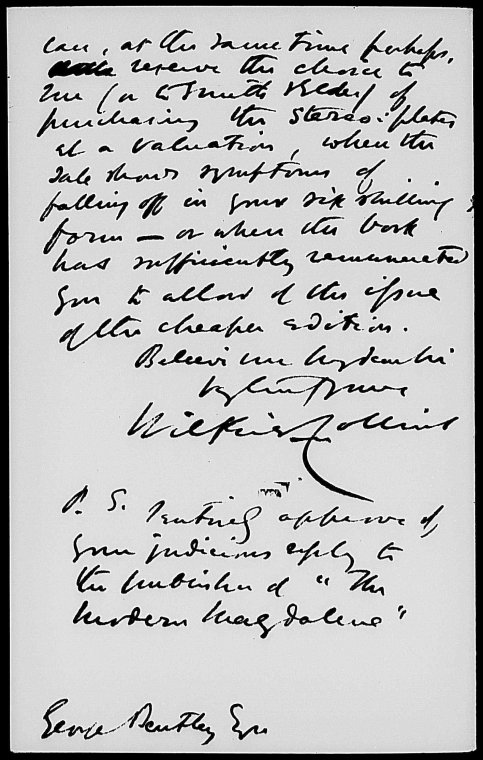 case, at the same time perhaps,
reserve the choice to
me (or to Smith & Elder) of
purchasing the stereo: plates
at a valuation, when the
sale shows symptoms of
falling off in your six shilling
form — or when the book
has sufficiently remunerated
you to allow of the issue
of the cheaper edition.
Believe me my dear Sir
Very truly yours
Wilkie Collins
P. S. I entirely approve of
your judicious reply to
the publisher of "The
Modern Magdalene"
George Bentley Esqre